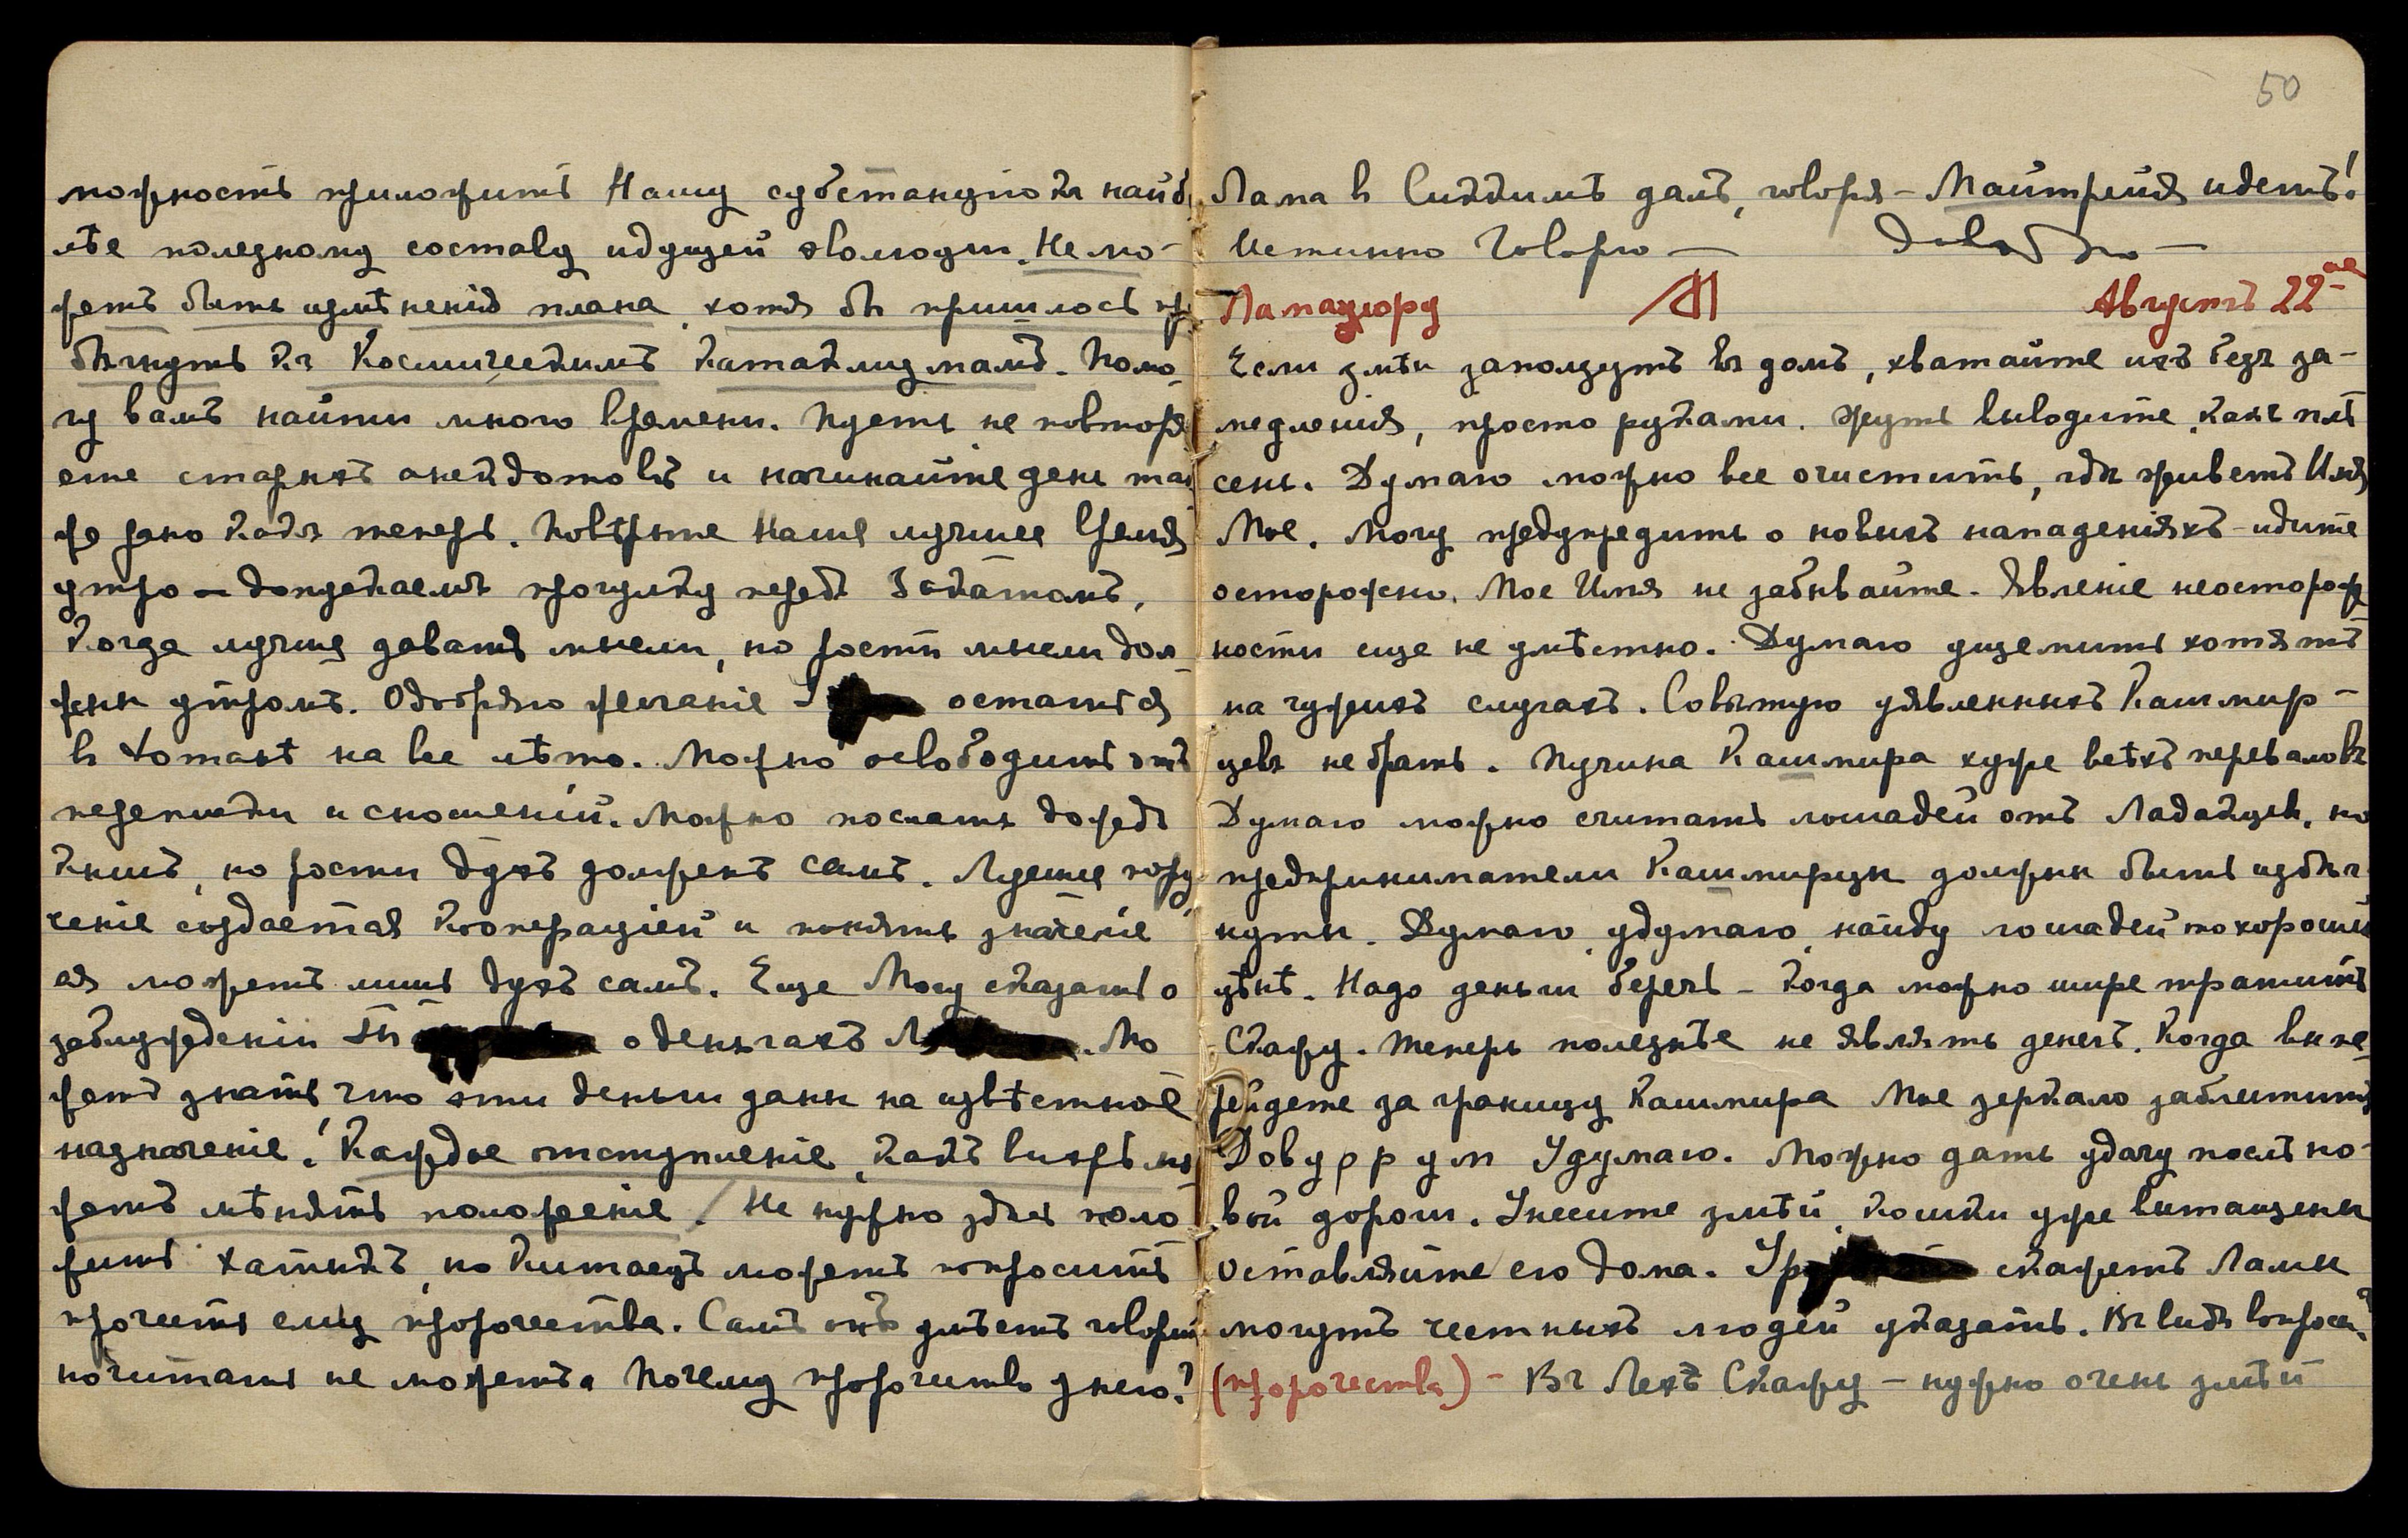 можность приложить Нашу субстанцію къ наибо
лѣе полезному составу идущей эволюціи. Не мо-
жетъ быть измѣненія плана, хотя бы пришлось при
бѣгнуть къ Космическимъ Катаклизмамъ. Помо-
гу вамъ найти много времени. Пусть не повторя
еще старыхъ анекдотовъ и начинайте день так
же рано какъ теперь. Повѣрьте Наше лучшее время
утро — допускаемъ прогулку передъ Закатомъ,
Когда лучше давать мысли, но рости мысли дол-
жны утромъ. Одобряю желаніе остаться
въ Хотанѣ на все лѣто. Можно освободить отъ
переписки и сношеній. Можно послать дождь
книгъ, но рости духъ долженъ самъ. Лучшее пору-
ченіе создается Кооперацией и понять значеніе
ея можетъ лишь духъ самъ. Еще Могу сказать о
заблужденіи о деньгахъ Мо
жетъ знать что эти деньги даны на извѣстное
назначеніе. Каждое отступленіе, какъ вихрь мо
жетъ мѣнять положеніе. Не нужно здѣсь поло
жить хатыкъ, но Китаецъ можетъ попросить
прочесть ему пророчества. Самъ онъ умѣетъ говорить
но читать не можетъ. Почему пророчество у него?
50
Лама въ Сиккимѣ далъ, говоря — Майтрейя идетъ!
Истинно Говорю — Довольно —
Ламаюру М Августъ 22-ое
Если змѣи заползутъ въ домъ, хватайте ихъ безъ за-
медленія, просто руками. Жуть выводите, какъ плѣ
сень. Думаю можно все очистить, гдѣ живетъ Имя
Мое. Могу предупредить о новыхъ нападеніяхъ — идите
осторожно. Мое Имя не забывайте. Явленіе неосторож
ности еще не умѣстно. Думаю ущемить хотятъ
на чужихъ слугахъ. Совѣтую уявленныхъ Кашмир-
цевъ не брать. Пучина Кашмира хуже всѣхъ переваловъ
Думаю можно считать лошадей отъ Ладакцевъ, но
предприниматели Кашмирцы должны быть избѣг
нуты. Думаю, удумаю, найду лошадей по хорошей
цѣнѣ. Надо деньги беречь — Когда можно шире тратить
Скажу. Теперь полезнѣе не являть денегъ. Когда вы пе-
рейдете за границу Кашмира Мое зеркало заблеститъ
Довуррум Удумаю. Можно дать удачу послѣ но-
вой дороги. Унесите змѣй, кошки уже вытащены
Оставляйте его дома. скажетъ Ламы
могутъ честныхъ людей указать. Въ видѣ вопроса?
(пророчество) — Въ Лехѣ Скажу — нужно очень змѣй